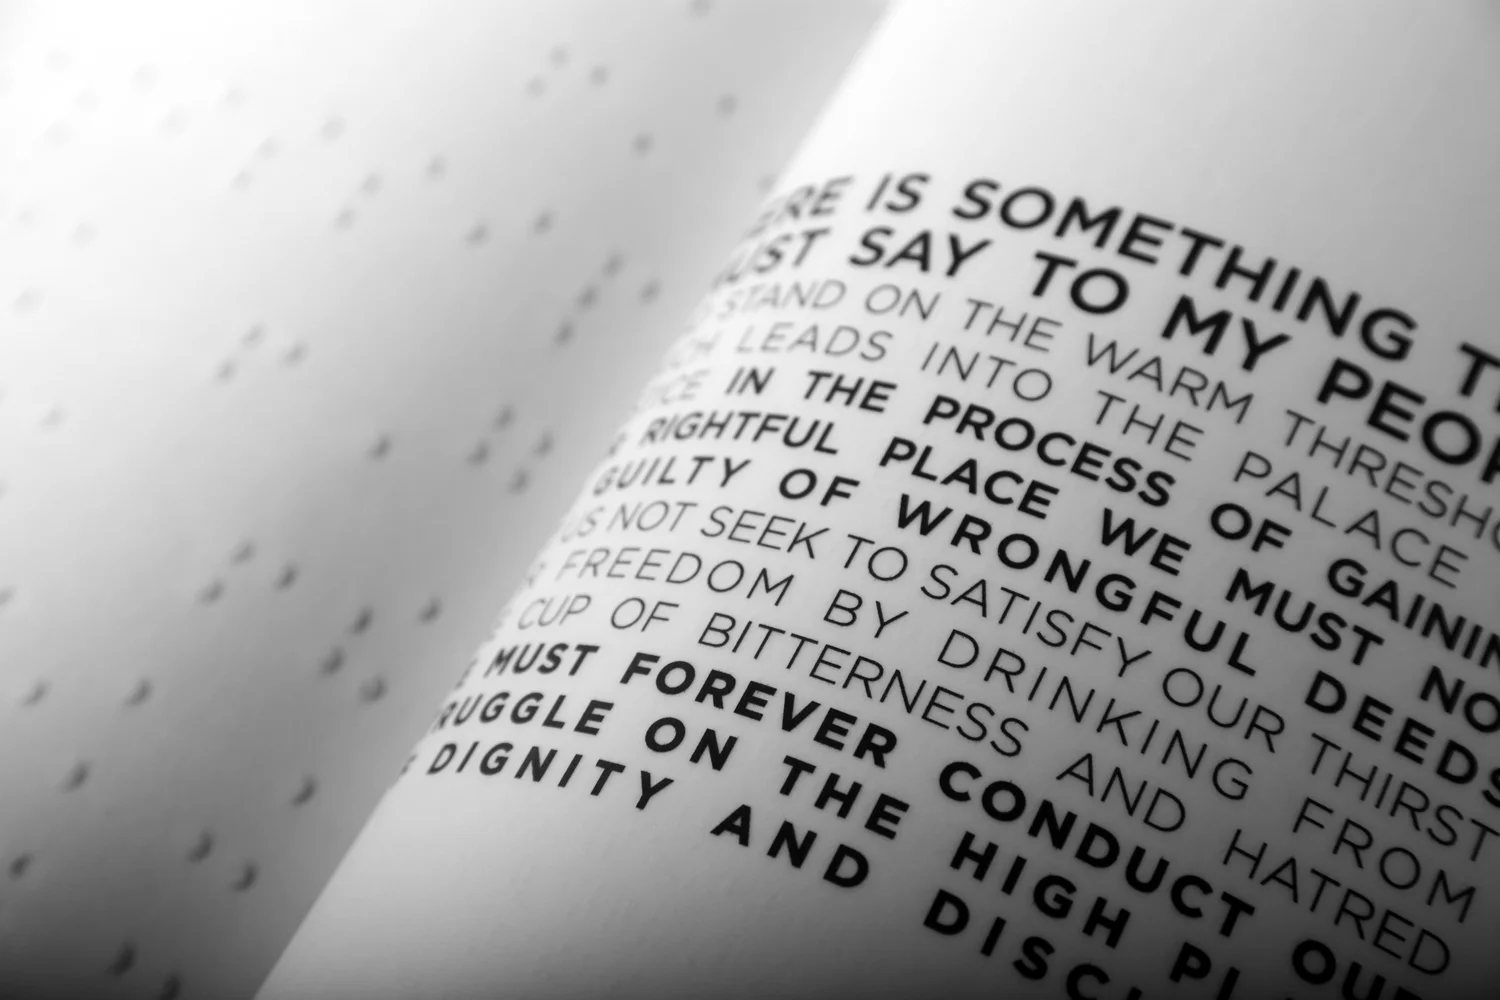 ERE IS SOMETHING TH
UST SAY TO MY PEOP
STAND ON THE WARM THRESHO
CH LEADS INTO THE PALACE
ICE IN THE PROCESS OF GAININ
R RIGHTFUL PLACE WE MUST NO
GUILTY OF WRONGFUL DEEDS
US NOT SEEK TO SATISFY OUR THIRST
R FREEDOM BY DRINKING FROM
E CUP OF BITTERNESS AND HATRED
E MUST FOREVER CONDUCT OUR
RUGGLE ON THE HIGH PL
DIGNITY AND DISCI